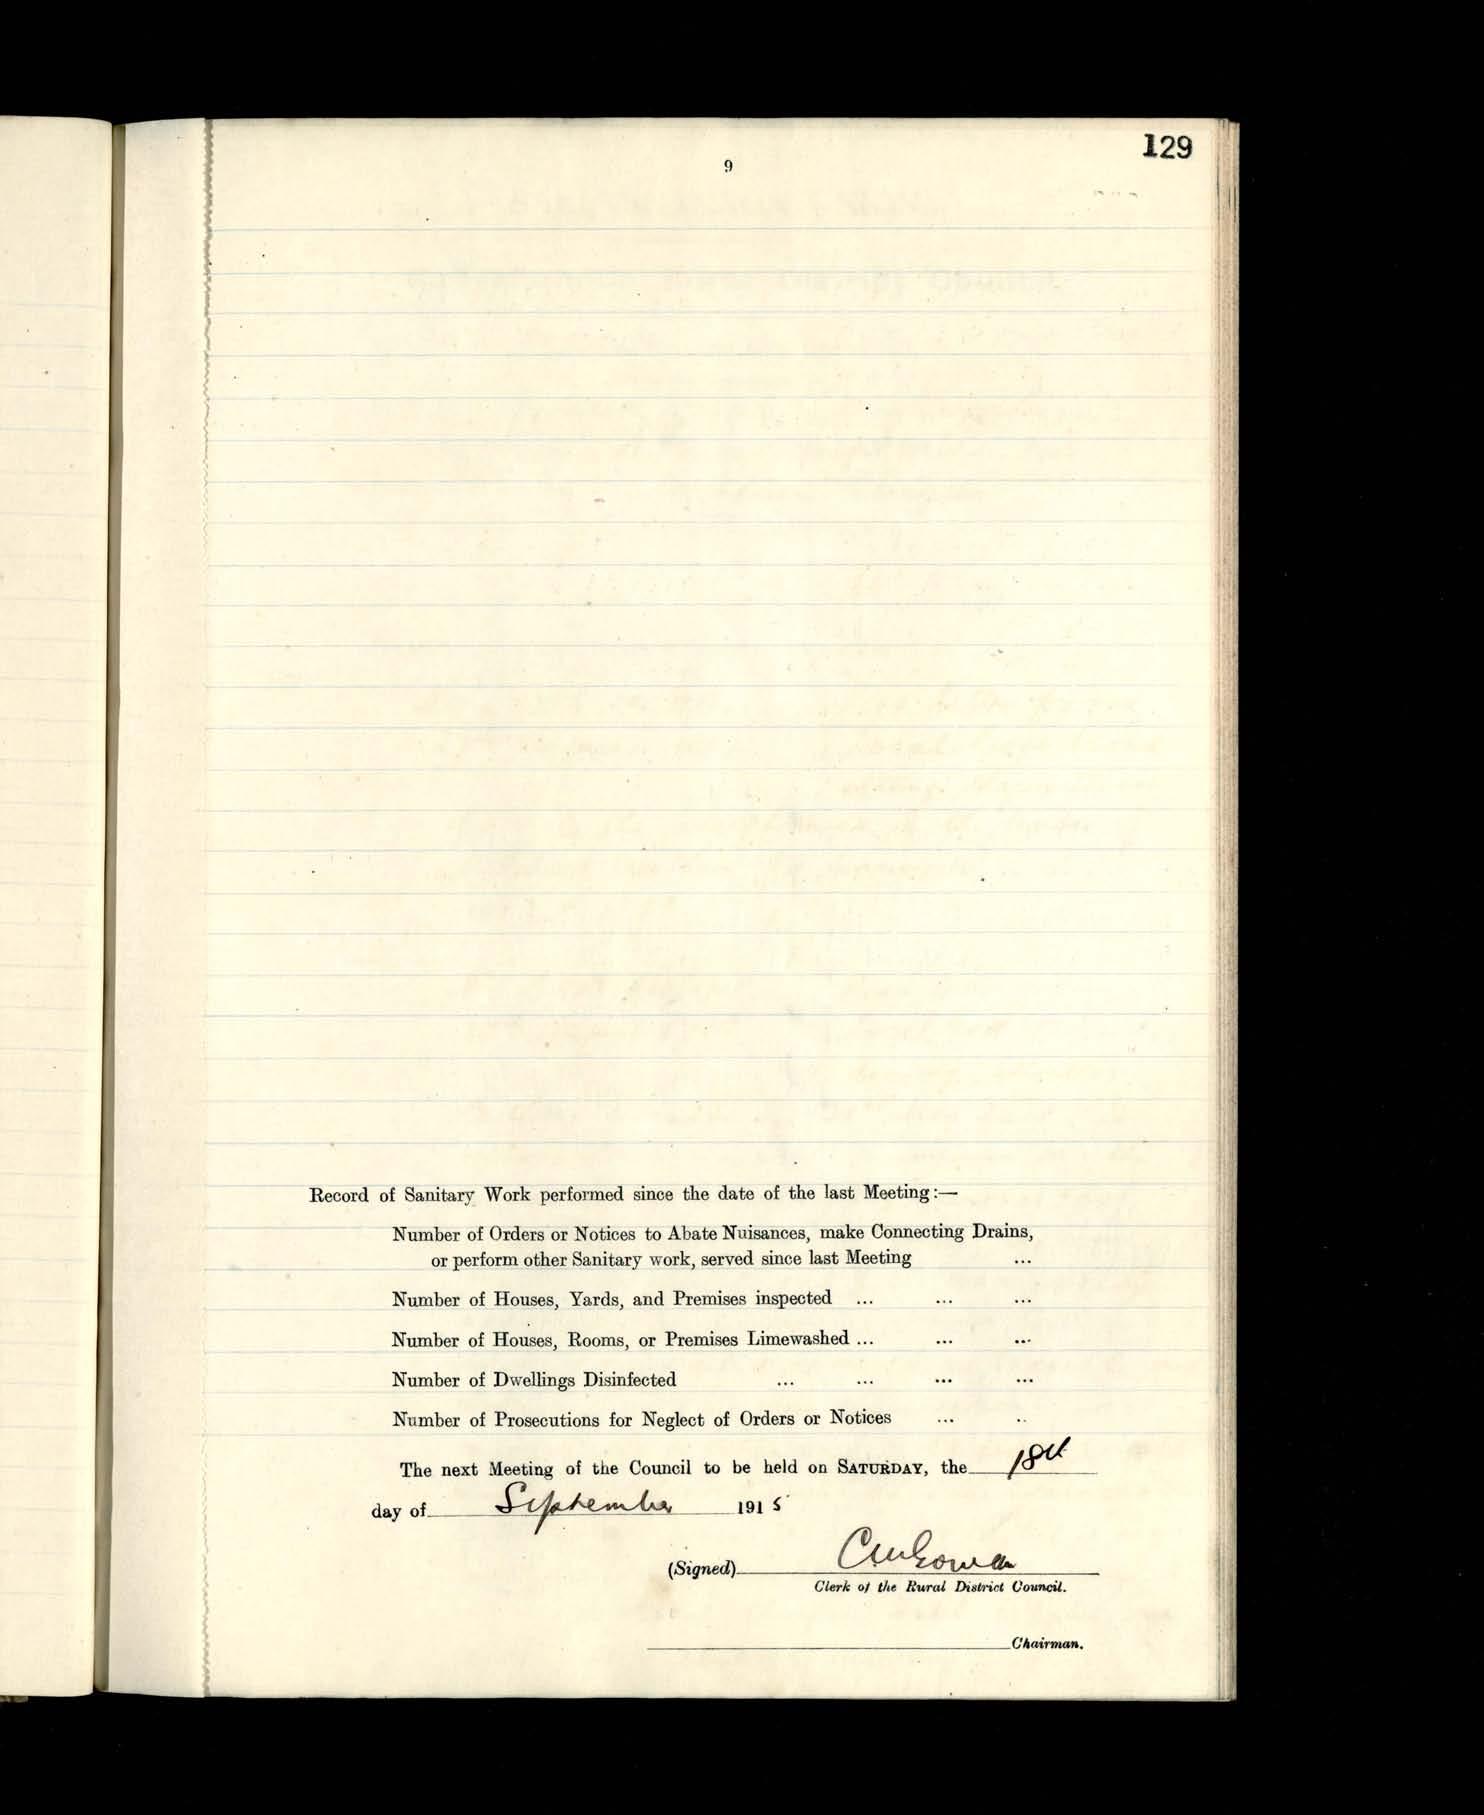 129
9
Record of Sanitary Work performed since the date of the last Meeting:—
Number of Orders or Notices to Abate Nuisances, make Connecting Drains,
or perform other Sanitary work, served since last Meeting ...
Number of Houses, Yards, and Premises inspected ... ... ...
Number of Houses, Rooms, or Premises Limewashed ... ... ...
Number of Dwellings Disinfected ... ... ... ...
Number of Prosecutions for Neglect of Orders or Notices ... ..
The next Meeting of the Council to be held on SATURDAY, the 18th
day of September 1915
(Signed)
Clerk of the Rural District Council.
Chairman.